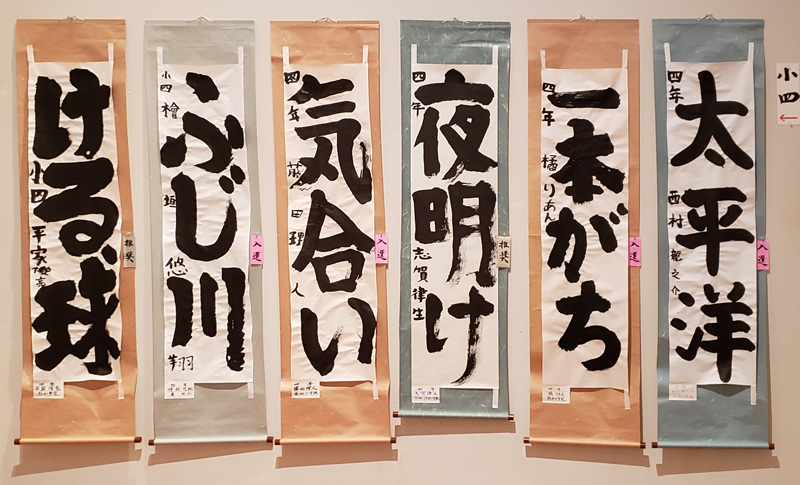 小四
太平洋
四年 西村 龍之介
入選
一本がち
四年 橘りあん
入選
夜明け
四年 志賀律生
推奨
気合い
四年 藤田理人
入選
ふじ川
小四 檜垣悠翔
入選
ける球
小四 平家
推奨